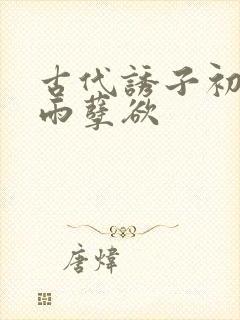 古代誘子初
雨孽欲
唐煒